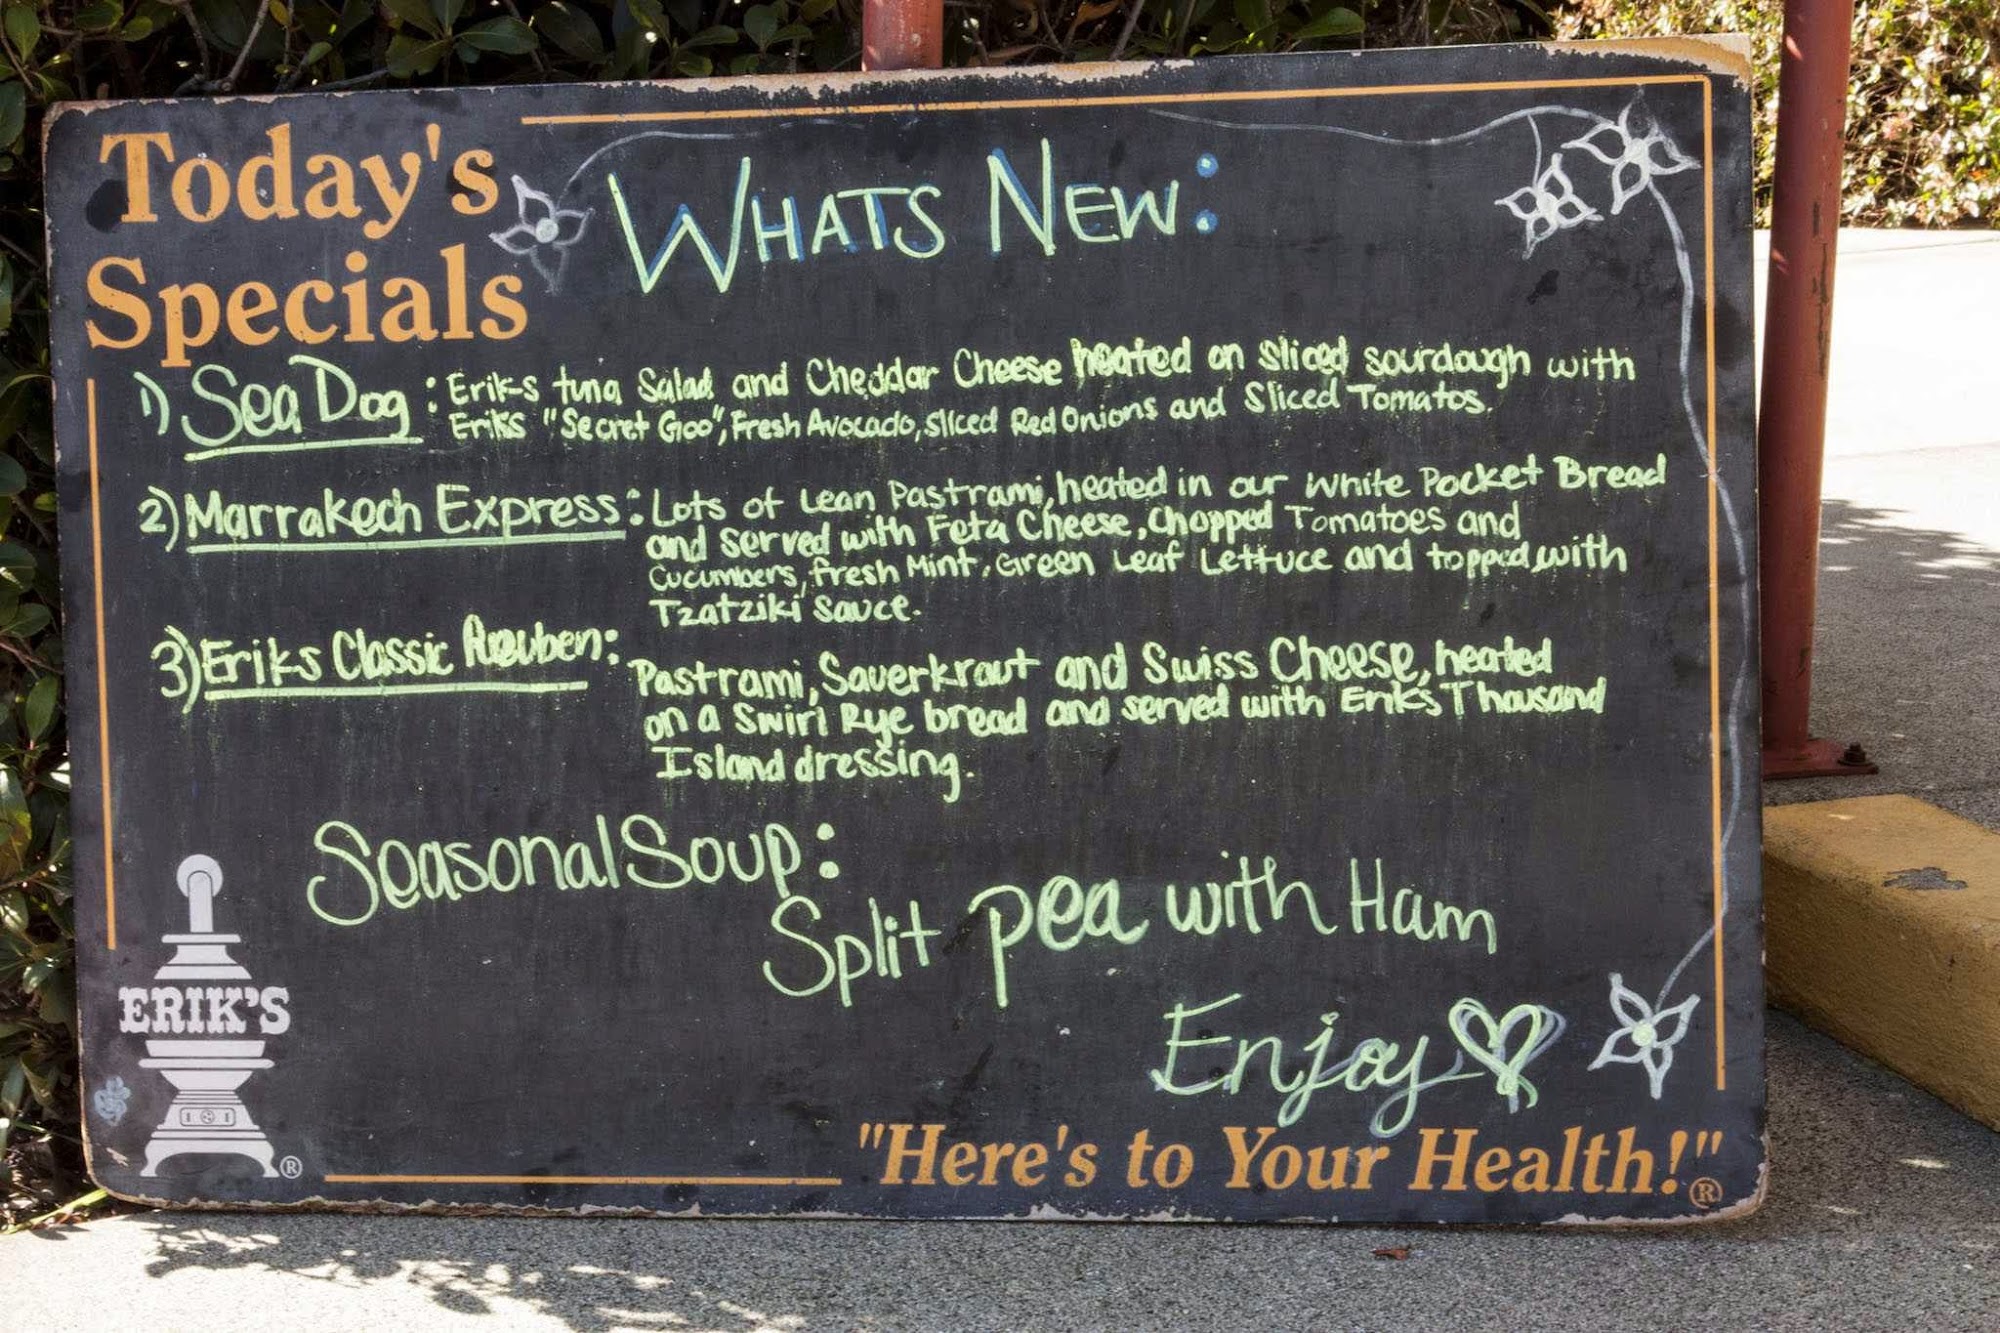 Today's
Specials
WHATS NEW:
1) Sea Dog: Eriks tuna Salad and Cheddar Cheese heated on sliced sourdough with
Erik's "Secret Goo", Fresh Avocado, sliced Red Onions and Sliced Tomatos.
2) Marrakech Express: Lots of Lean Pastrami, heated in our white Pocket Bread
and served with Feta Cheese, Chopped Tomatoes and
Cucumbers, fresh Mint, Green Leaf Lettuce and topped with
Tzatziki sauce.
3) Eriks Classic Reuben: Pastrami, Sauerkraut and Swiss Cheese, heated
on a Swirl Rye bread and served with Erik's Thousand
Island dressing.
Seasonal Soup:
Split pea with Ham
Enjoy
ERIK'S
®
"Here's to Your Health!"®